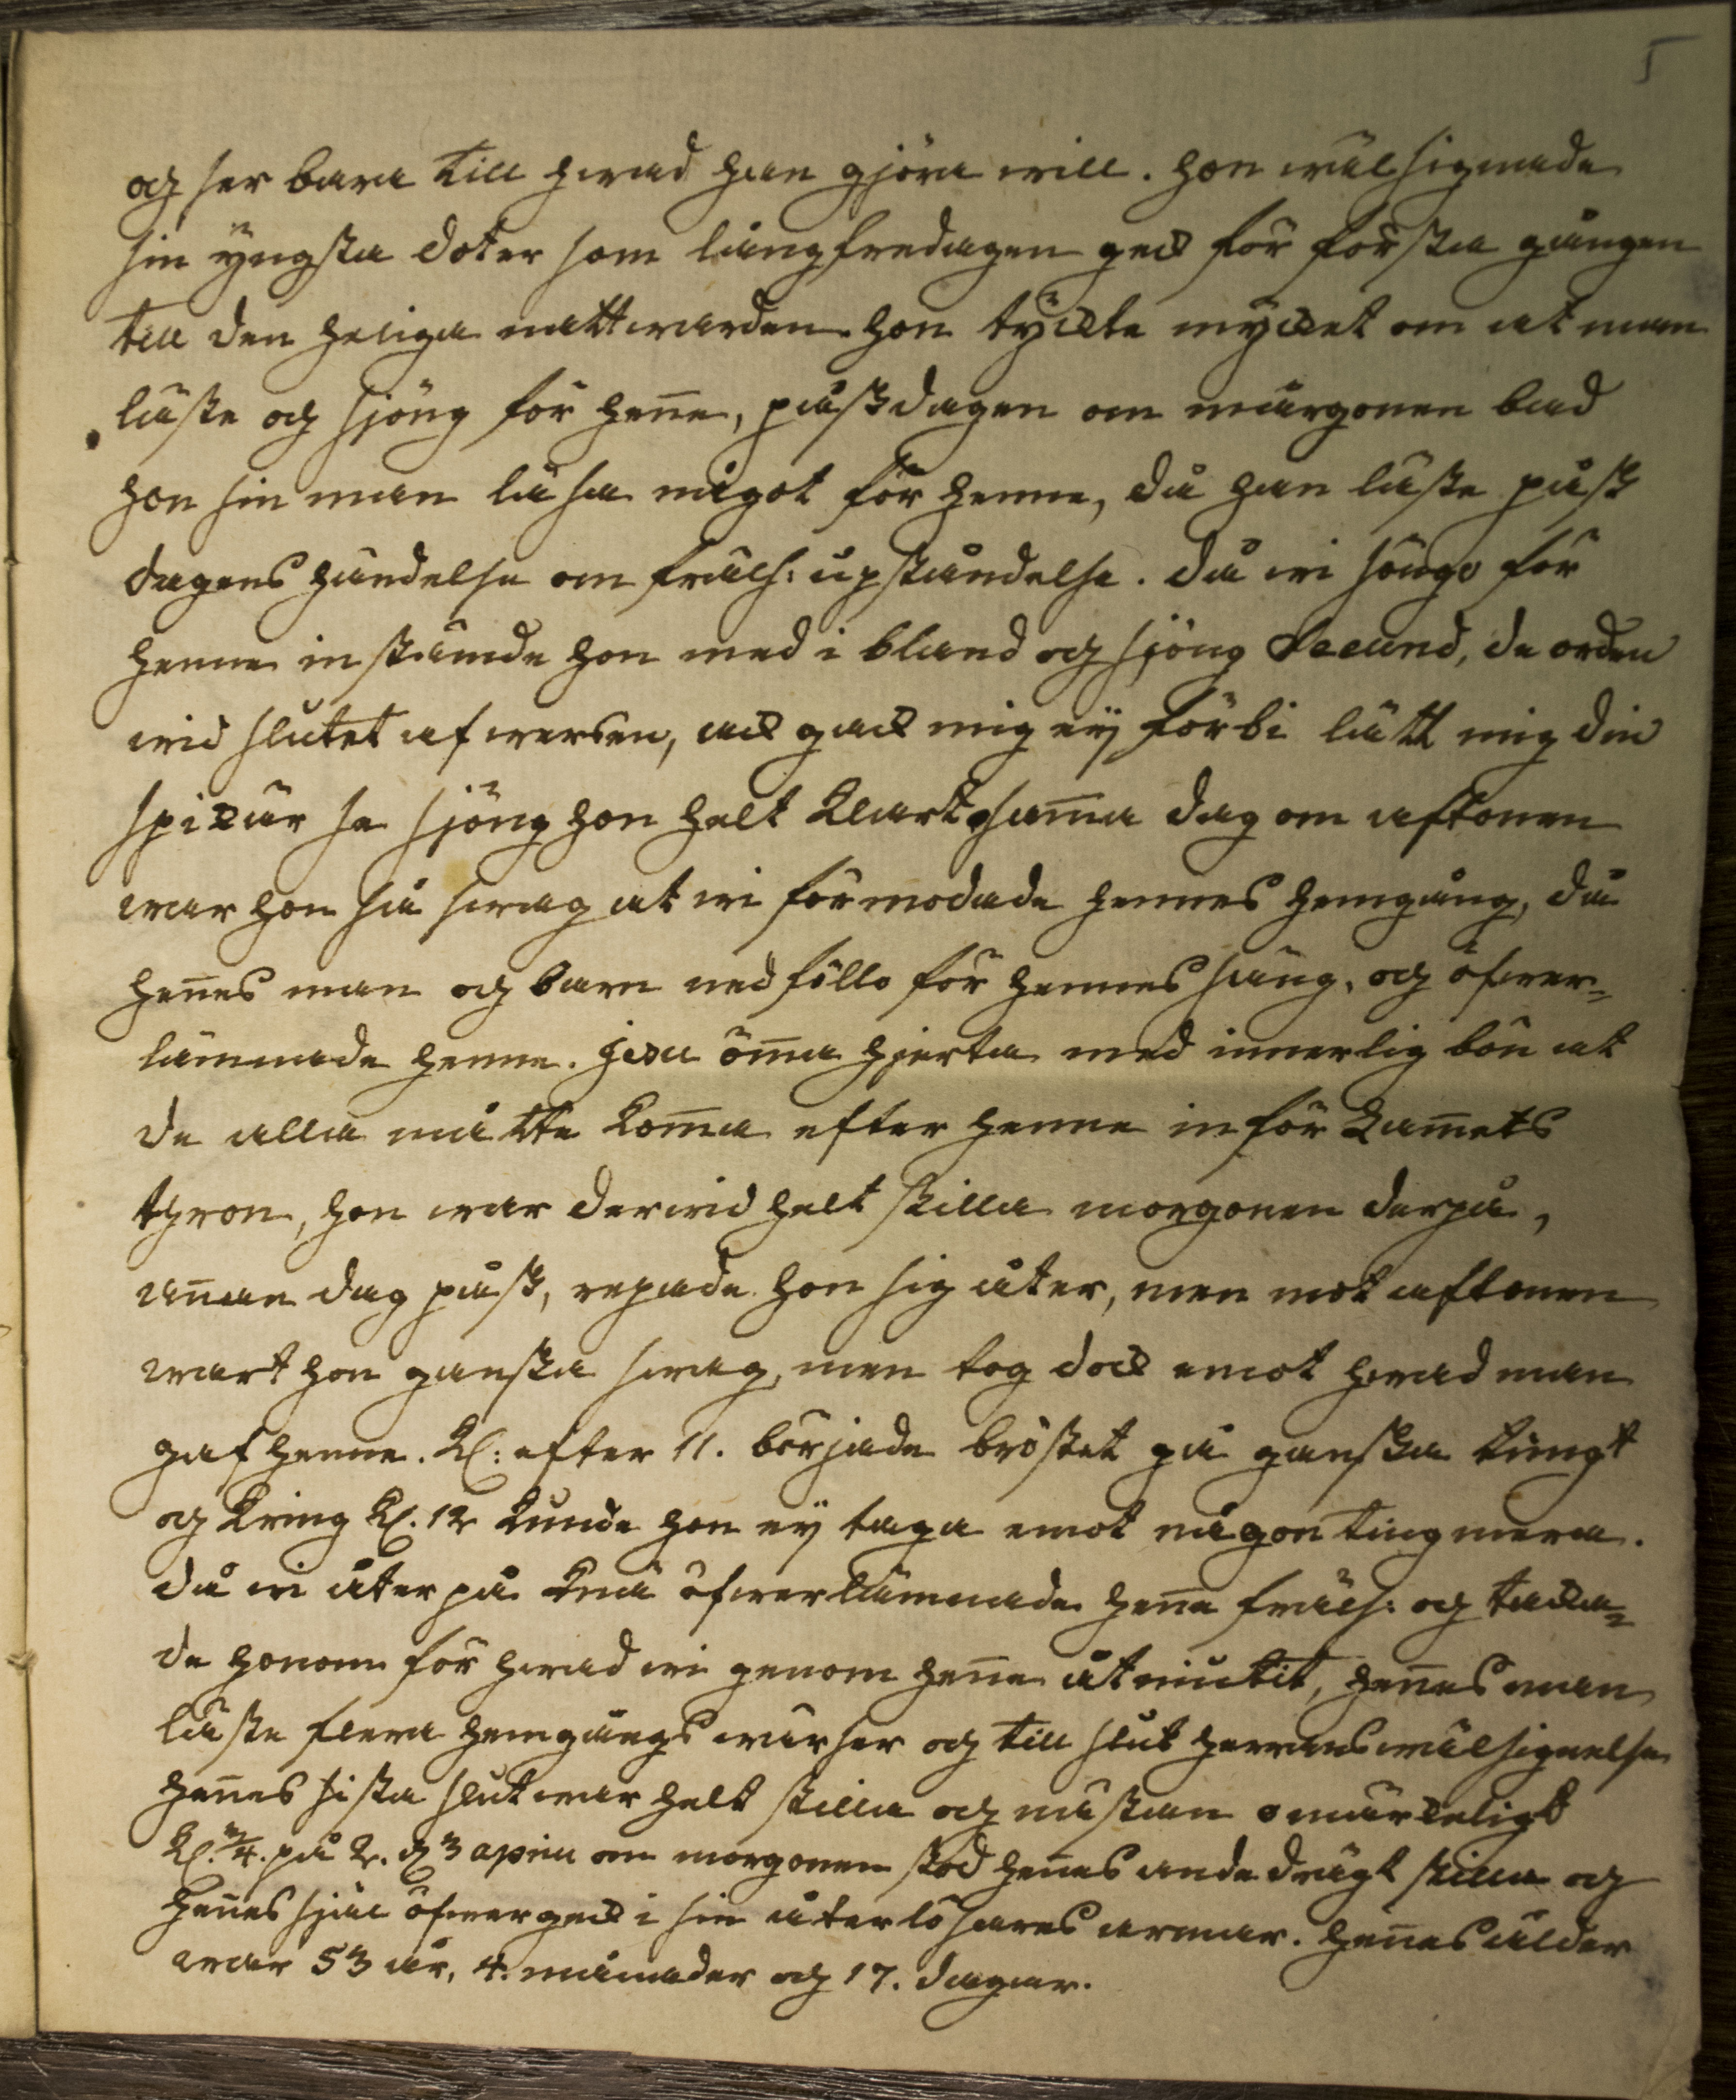 5
og ser bara till hwad han gjöra will. hon wälsignade
sin yngsta doter som långfredagen geck för första gången
till den heliga nattwarden. hon tyckte mycket om at man
läste og sjöng för hene, påskdagen om mårgonen bad
hon sin man läsa något för henne, då han läste påsk
dagens händelse om fräls: upståndelse. då wi söngo för
henne instämde hon med i bland og sjöng Secund, de orden
wid slutet af wersen, ack gack mig ey förbi lått mig din
spis är se sjöng hon helt klart sama dag om aftonen
war hon så swag at wi förmodade hennes hemgång, då
henes man og barn nedföllo för hennes säng, og öfwer-
lämnade henne. Jesu öma hjerta med innerlig bön at
de alla måtte koma efter henne inför Lamets
thron, hon war derwid helt stilla morgonen derpå,
anan dag påsk, repade hon sig åter, men mot aftonen
wart hon ganska swag, men tog dock emot hwad man
gaf henne. Kl: efter 11. började bröstet gå ganska tungt
og kring Kl. 12 kunde hon ey taga emot någon ting mera.
då wi åter på knä öfwerlämnade hene fräls: og tacka-
de honom för hwad wi genom hene åtniutit, henes man
läste flera hemgångs wärser og till slut herrans wälsignelse
henes sista slut war helt stilla og nästan omärkeligt
Kl. 3/4. på 2. d 3 april om morgonen stod henes andedrägt stilla og
henes själ öfwergeck i sin återlösares armar. henes ålder
war 53 år, 4. månader og 17. dagar.